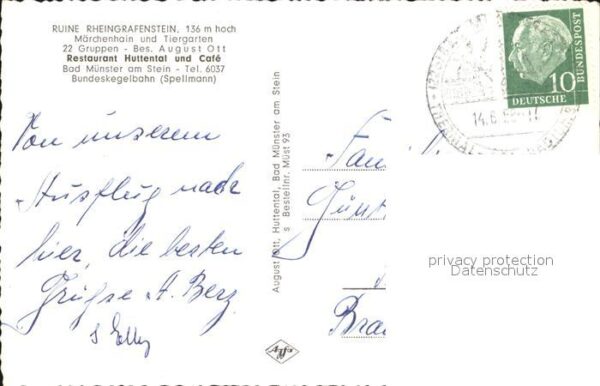 RUINE RHEINGRAFENSTEIN, 136 m hoch
Märchenhain und Tiergarten
22 Gruppen - Bes. August Ott
Restaurant Huttental und Café
Bad Münster am Stein - Tel. 6037
Bundeskegelbahn (Spellmann)
Von unserem
Ausflug nach
hier, die besten
Grüße A. Berz
s Elly
August Ott, Huttental, Bad Münster am Stein
s Bestellnr. Müst 93
Agfa
10
DEUTSCHE
BUNDESPOST
14.6.
Fam
Günt
Bra
privacy protection
Datenschutz